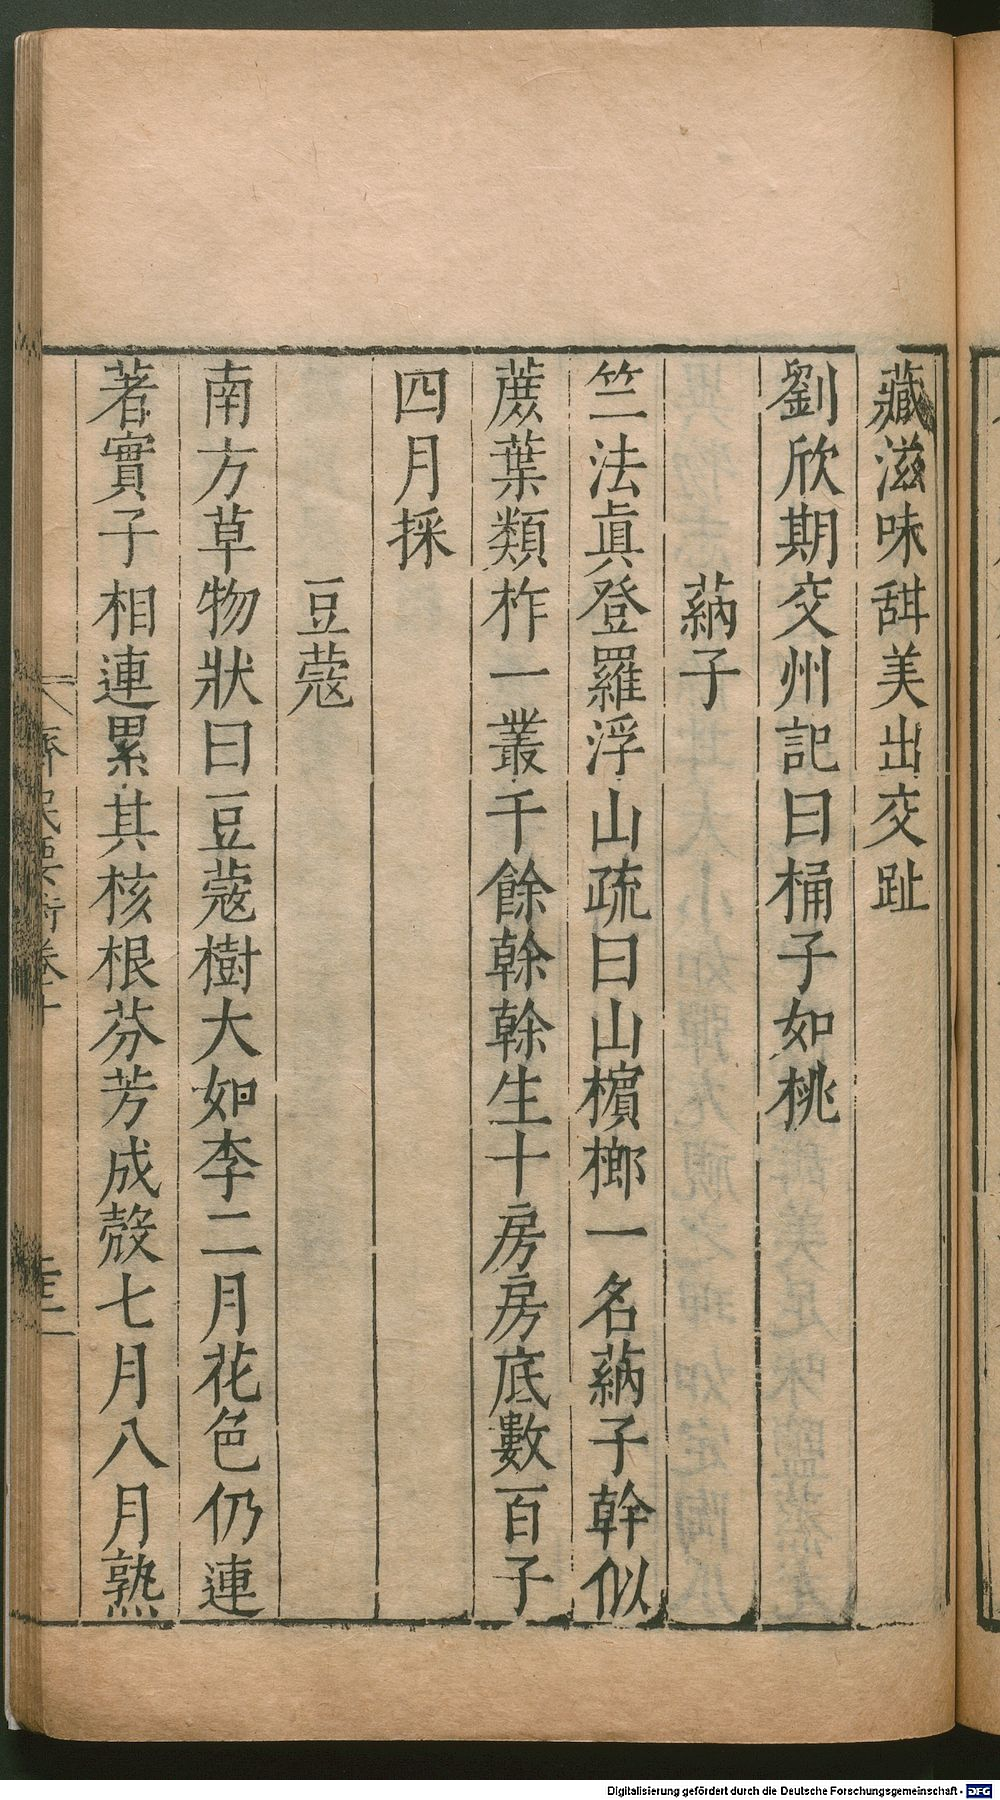 藏滋味甜美出交趾
劉欣期交州記曰桶子如桃
蒳子
竺法眞登羅浮山疏曰山檳榔一名蒳子幹似
蔗葉類柞一叢千餘幹幹生十房房底數百子
四月採
豆蔻
南方草物狀曰豆蔻樹大如李二月花色仍連
著實子相連累其核根芬芳成殼七月八月熟
齊民要術卷十
Digitalisierung gefördert durch die Deutsche Forschungsgemeinschaft - DFG